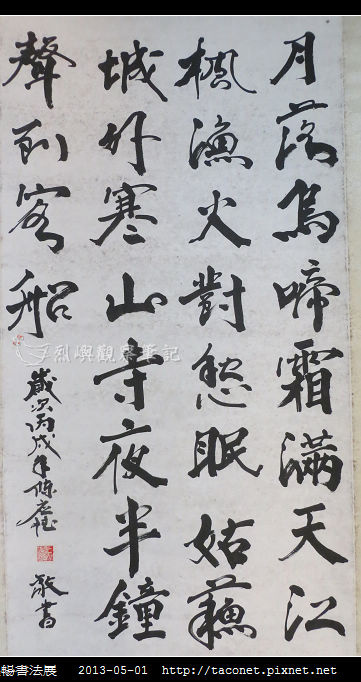 月落烏啼霜滿天江
楓漁火對愁眠姑蘇
城外寒山寺夜半鐘
聲到客船
歲次丙戌年陳 敬書
烈嶼觀察筆記
暢書法展 2013-05-01 http://taconet.pixnet.net